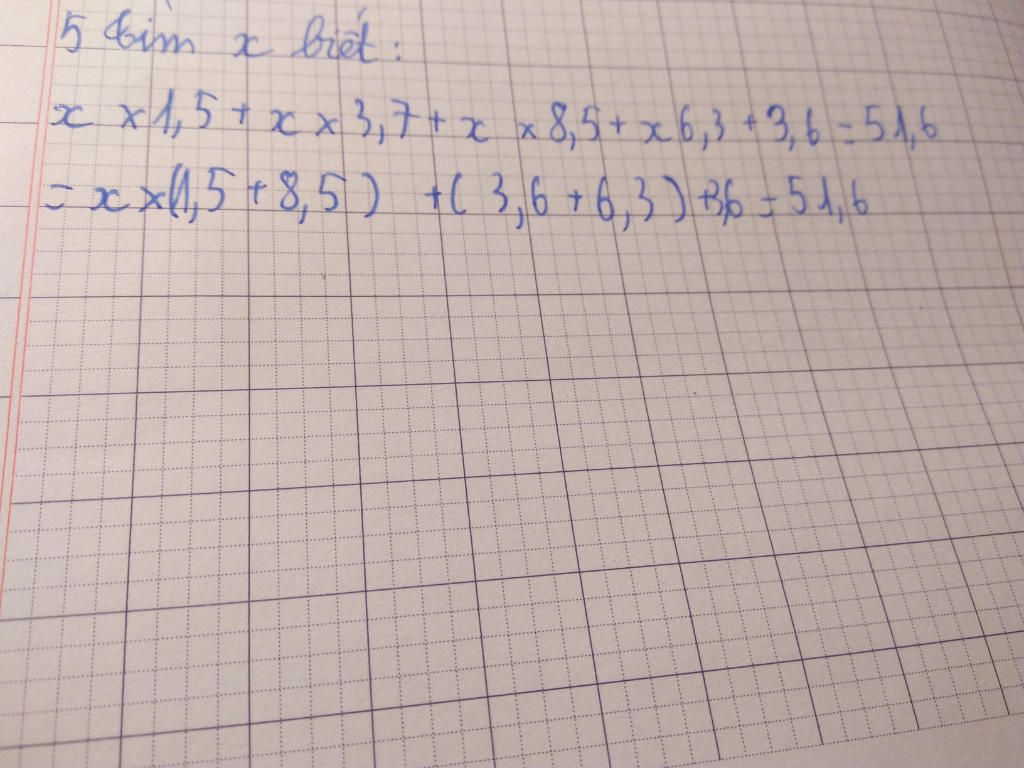 5 tìm x biết:
x × 1,5 + x × 3,7 + x × 8,5 + x 6,3 + 3,6 = 51,6
= x × (1,5 + 8,5) + ( 3,6 + 6,3 ) + 3,6 = 51,6